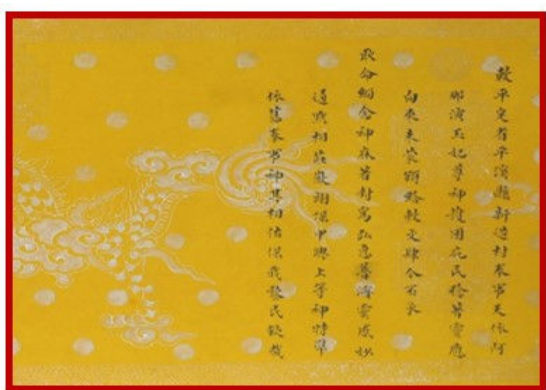 敕平定省平溪縣新造村奉事天依阿
那演玉妃尊神護國庇民稔著靈應
向來未蒙頒給敕文肆今丕承
耿命緬念神庥著封爲弘惠普濟靈感妙
通默相莊徽翊保中興上等神特準
依舊奉事神其相佑保我黎民欽哉